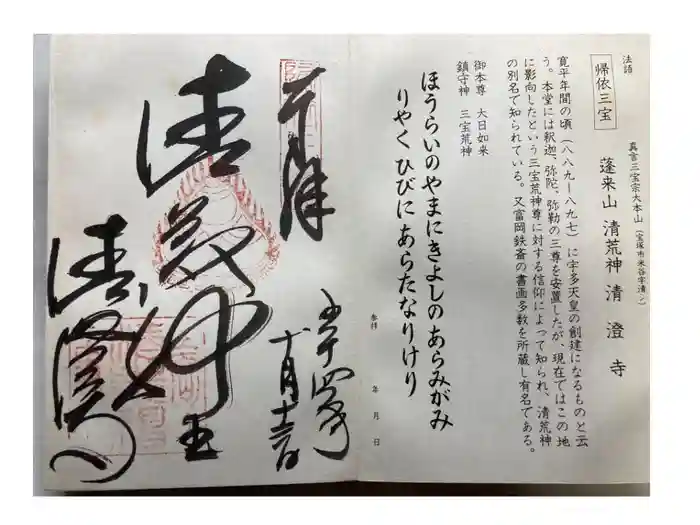 法語
帰依三宝
真言三宝宗大本山(宝塚市米谷字清シ)
蓬来山 清荒神 清澄寺
寛平年間の頃(八八九ー八九七)に宇多天皇の創建になるものと云
う。本堂には釈迦、弥陀、弥勒の三尊を安置したが、現在ではこの地
に影向したという三宝荒神尊に対する信仰によって知られ、清荒神
の別名で知られている。又富岡鉄斎の書画多数を所蔵し有名である。
御本尊 大日如来
鎮守神 三宝荒神
ほうらいのやまにきよしのあらみがみ
りやく ひびに あらたなりけり
参拝 年 月 日
奉拝
五十四年
清荒神王
清澄寺